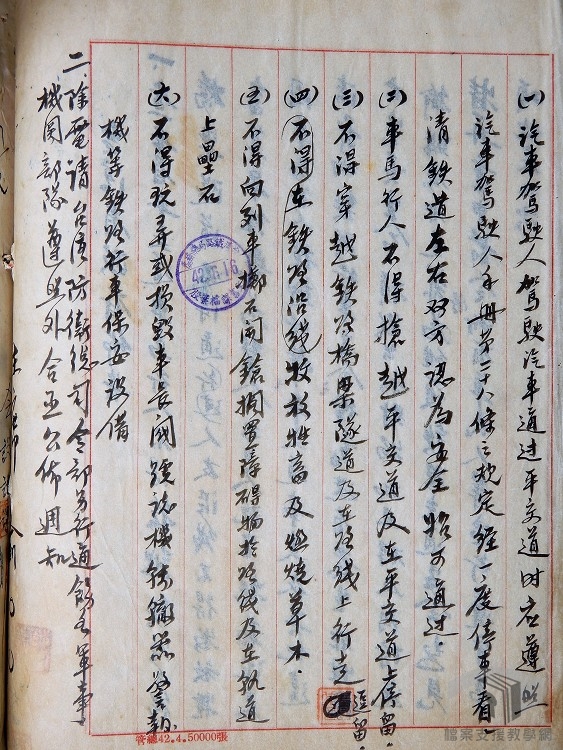 (一)汽車駕駛人駕駛汽車通过平交道时应遵照
汽車駕駛人手冊第二十八條之規定經一度停車看
清鉄道左右双方認為安全始可通过.
(二)車馬行人不得搶越平交道及在平交道上停留.
(三)不得穿越鉄路橋梁隧道及在路线上行走逗留.
(四)不得在鉄路沿线牧放牲畜及燃燒草木.
(五)不得向列車擲石開鎗擱置障碍物於路线及在軌道
上壘石
(六)不得玩弄或損毀車長阀號誌機轉轍器警報
機等鉄路行車保安設備
二、除電請台湾防衛总司令部另行通飭各軍事
機関部隊遵照外合亟公佈週知
管總42.4.50000張
檔案支援教學網